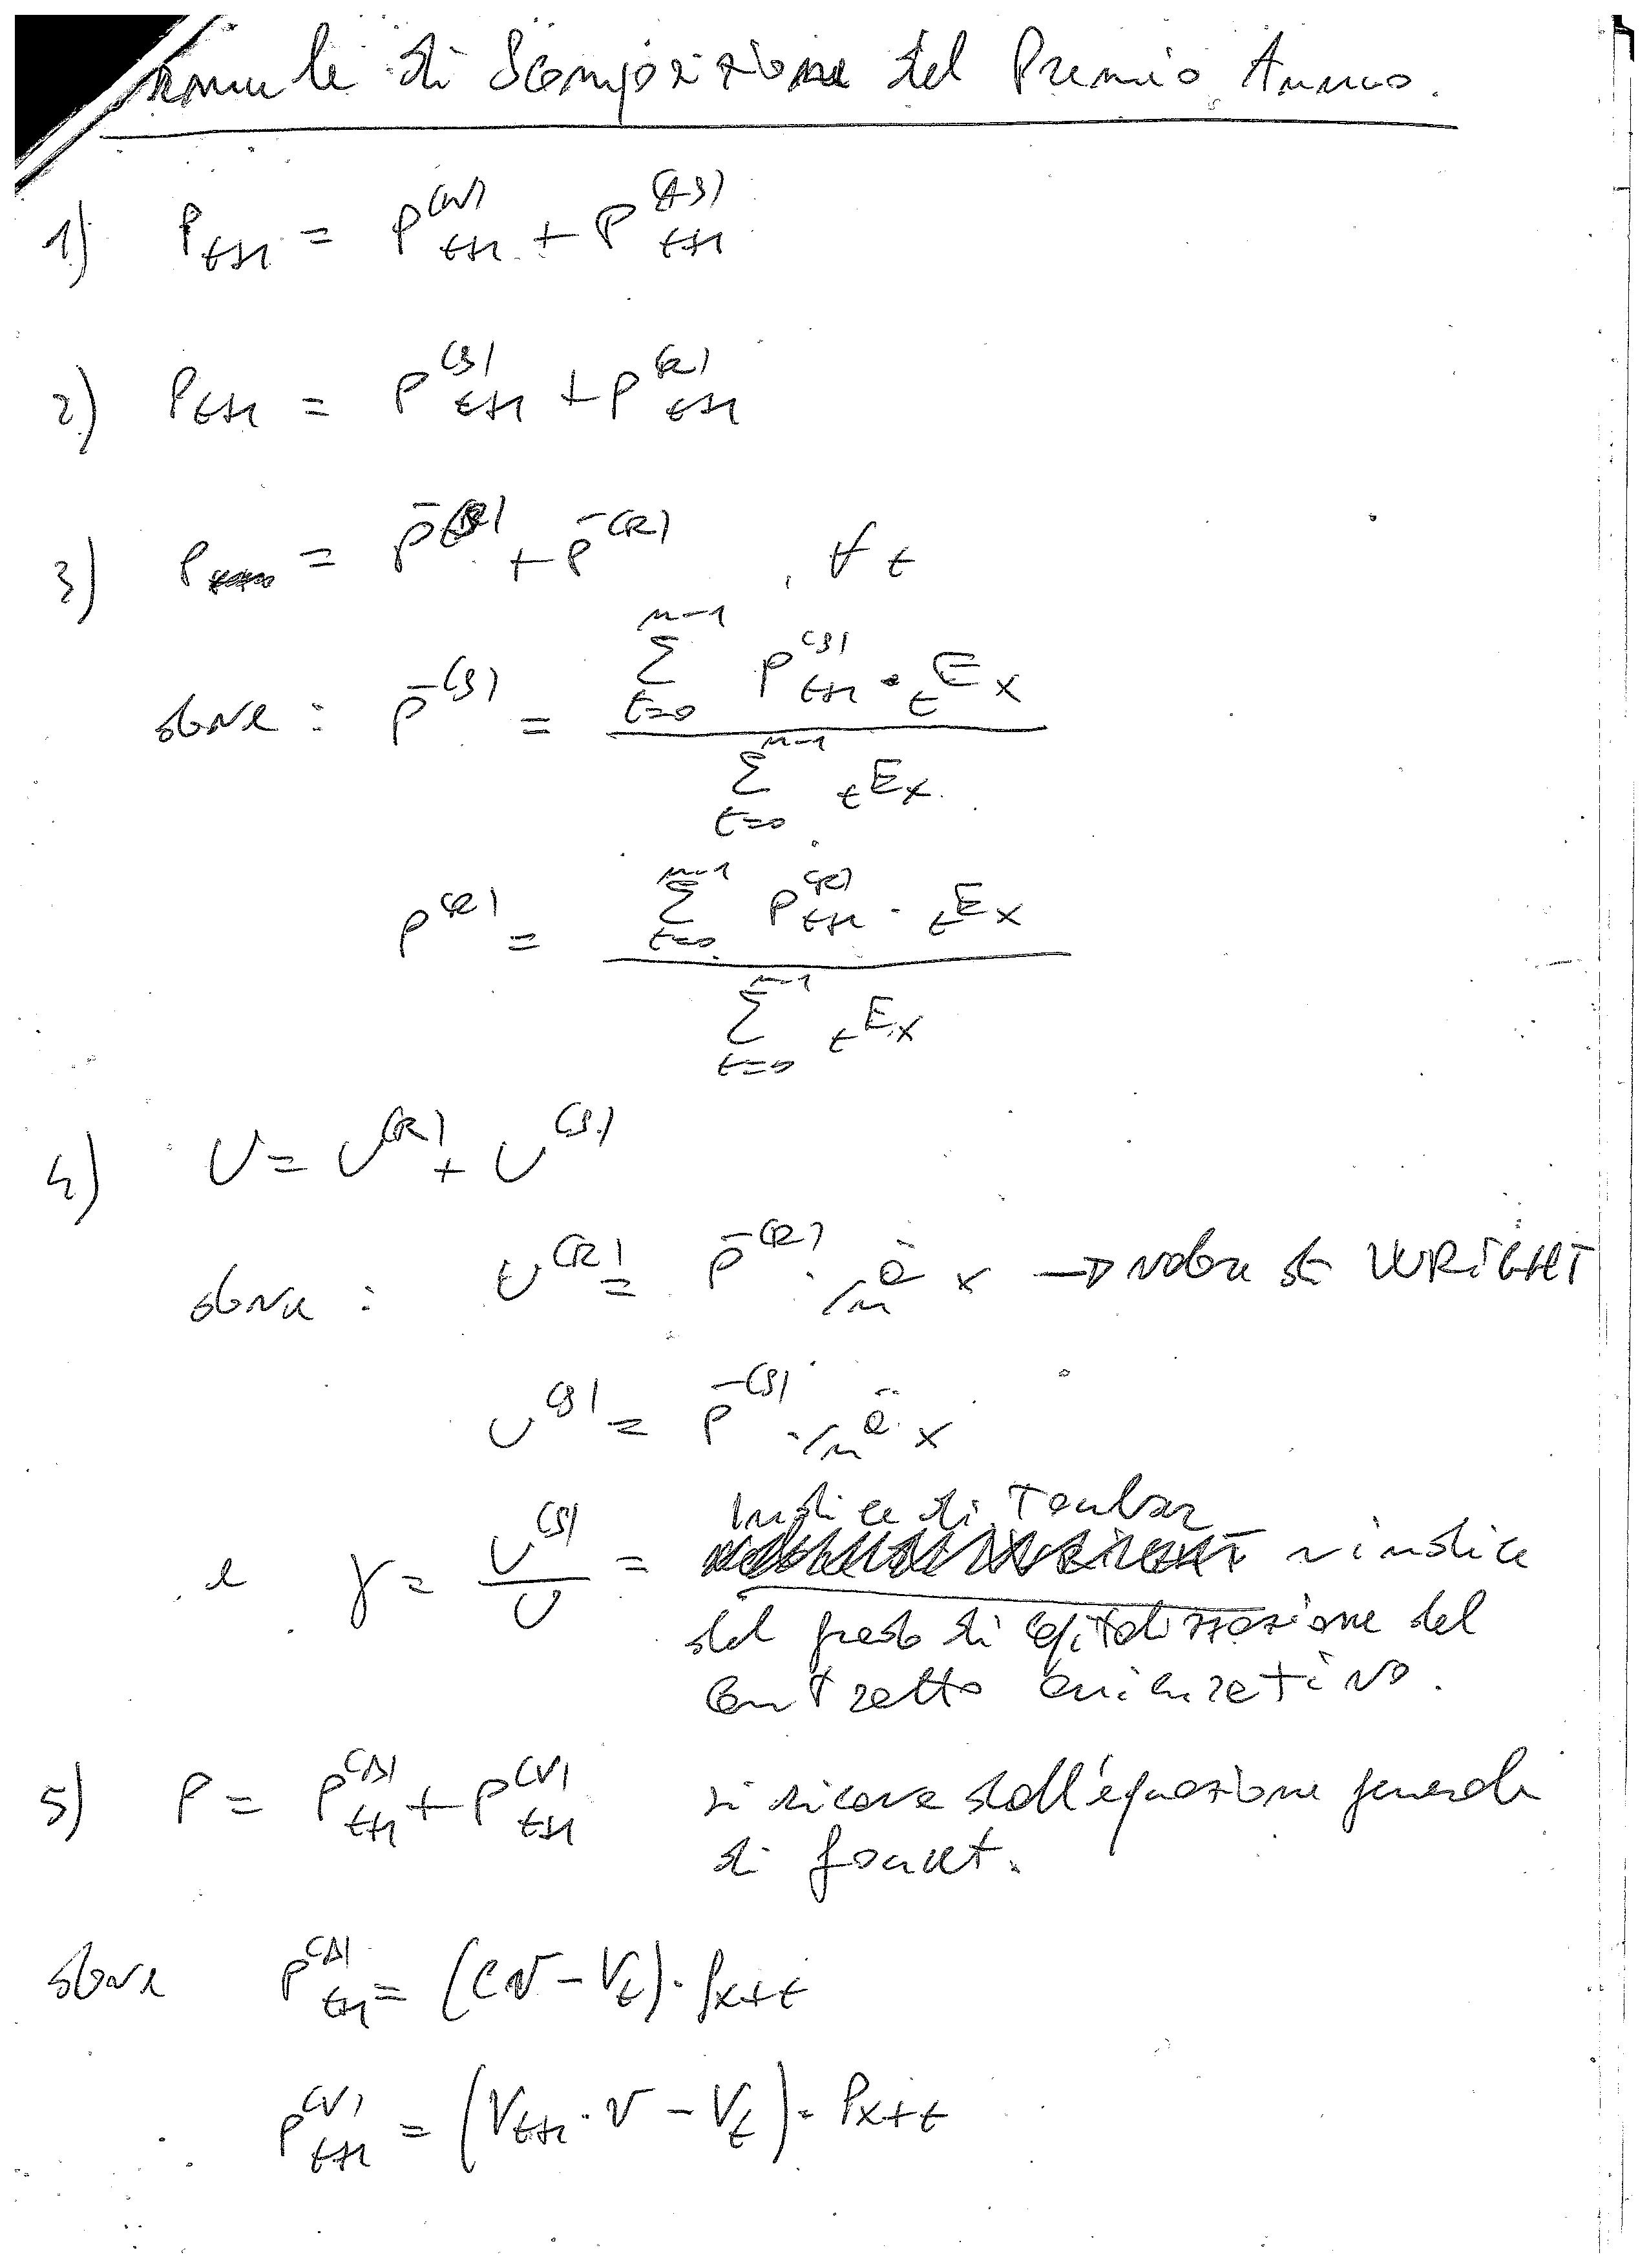 di Scomposizione del Premio Annuo.
1) P_{t+1} = P^{(N)}_{t+1} + P^{(AS)}_{t+1}
2) P_{t+1} = P^{(S)}_{t+1} + P^{(R)}_{t+1}
3) P = \bar{P}^{(S)} + \bar{P}^{(R)} , ∀ t
dove : \bar{P}^{(S)} = \frac{\sum_{t=0}^{n-1} P^{(S)}_{t+1} · {}_tE_x}{\sum_{t=0}^{n-1} {}_tE_x}
P^{(R)} = \frac{\sum_{t=0}^{n-1} P^{(R)}_{t+1} · {}_tE_x}{\sum_{t=0}^{n-1} {}_tE_x}
4) U = U^{(R)} + U^{(S)}
dove : U^{(R)} = \bar{P}^{(R)} · {}_{/n}ä_x → valore di WRIGHT
U^{(S)} = \bar{P}^{(S)} · {}_{/n}ä_x
Indice di
e γ = \frac{U^{(S)}}{U} = indice
del grado di capitalizzazione del
contratto assicurativo.
5) P = P^{(Δ)}_{t+1} + P^{(V)}_{t+1} si ricava dall'equazione generale
di fouret.
dove P^{(Δ)}_{t+1} = (Cv - V_t) · q_{x+t}
P^{(V)}_{t+1} = (V_{t+1} · v - V_t) · P_{x+t}